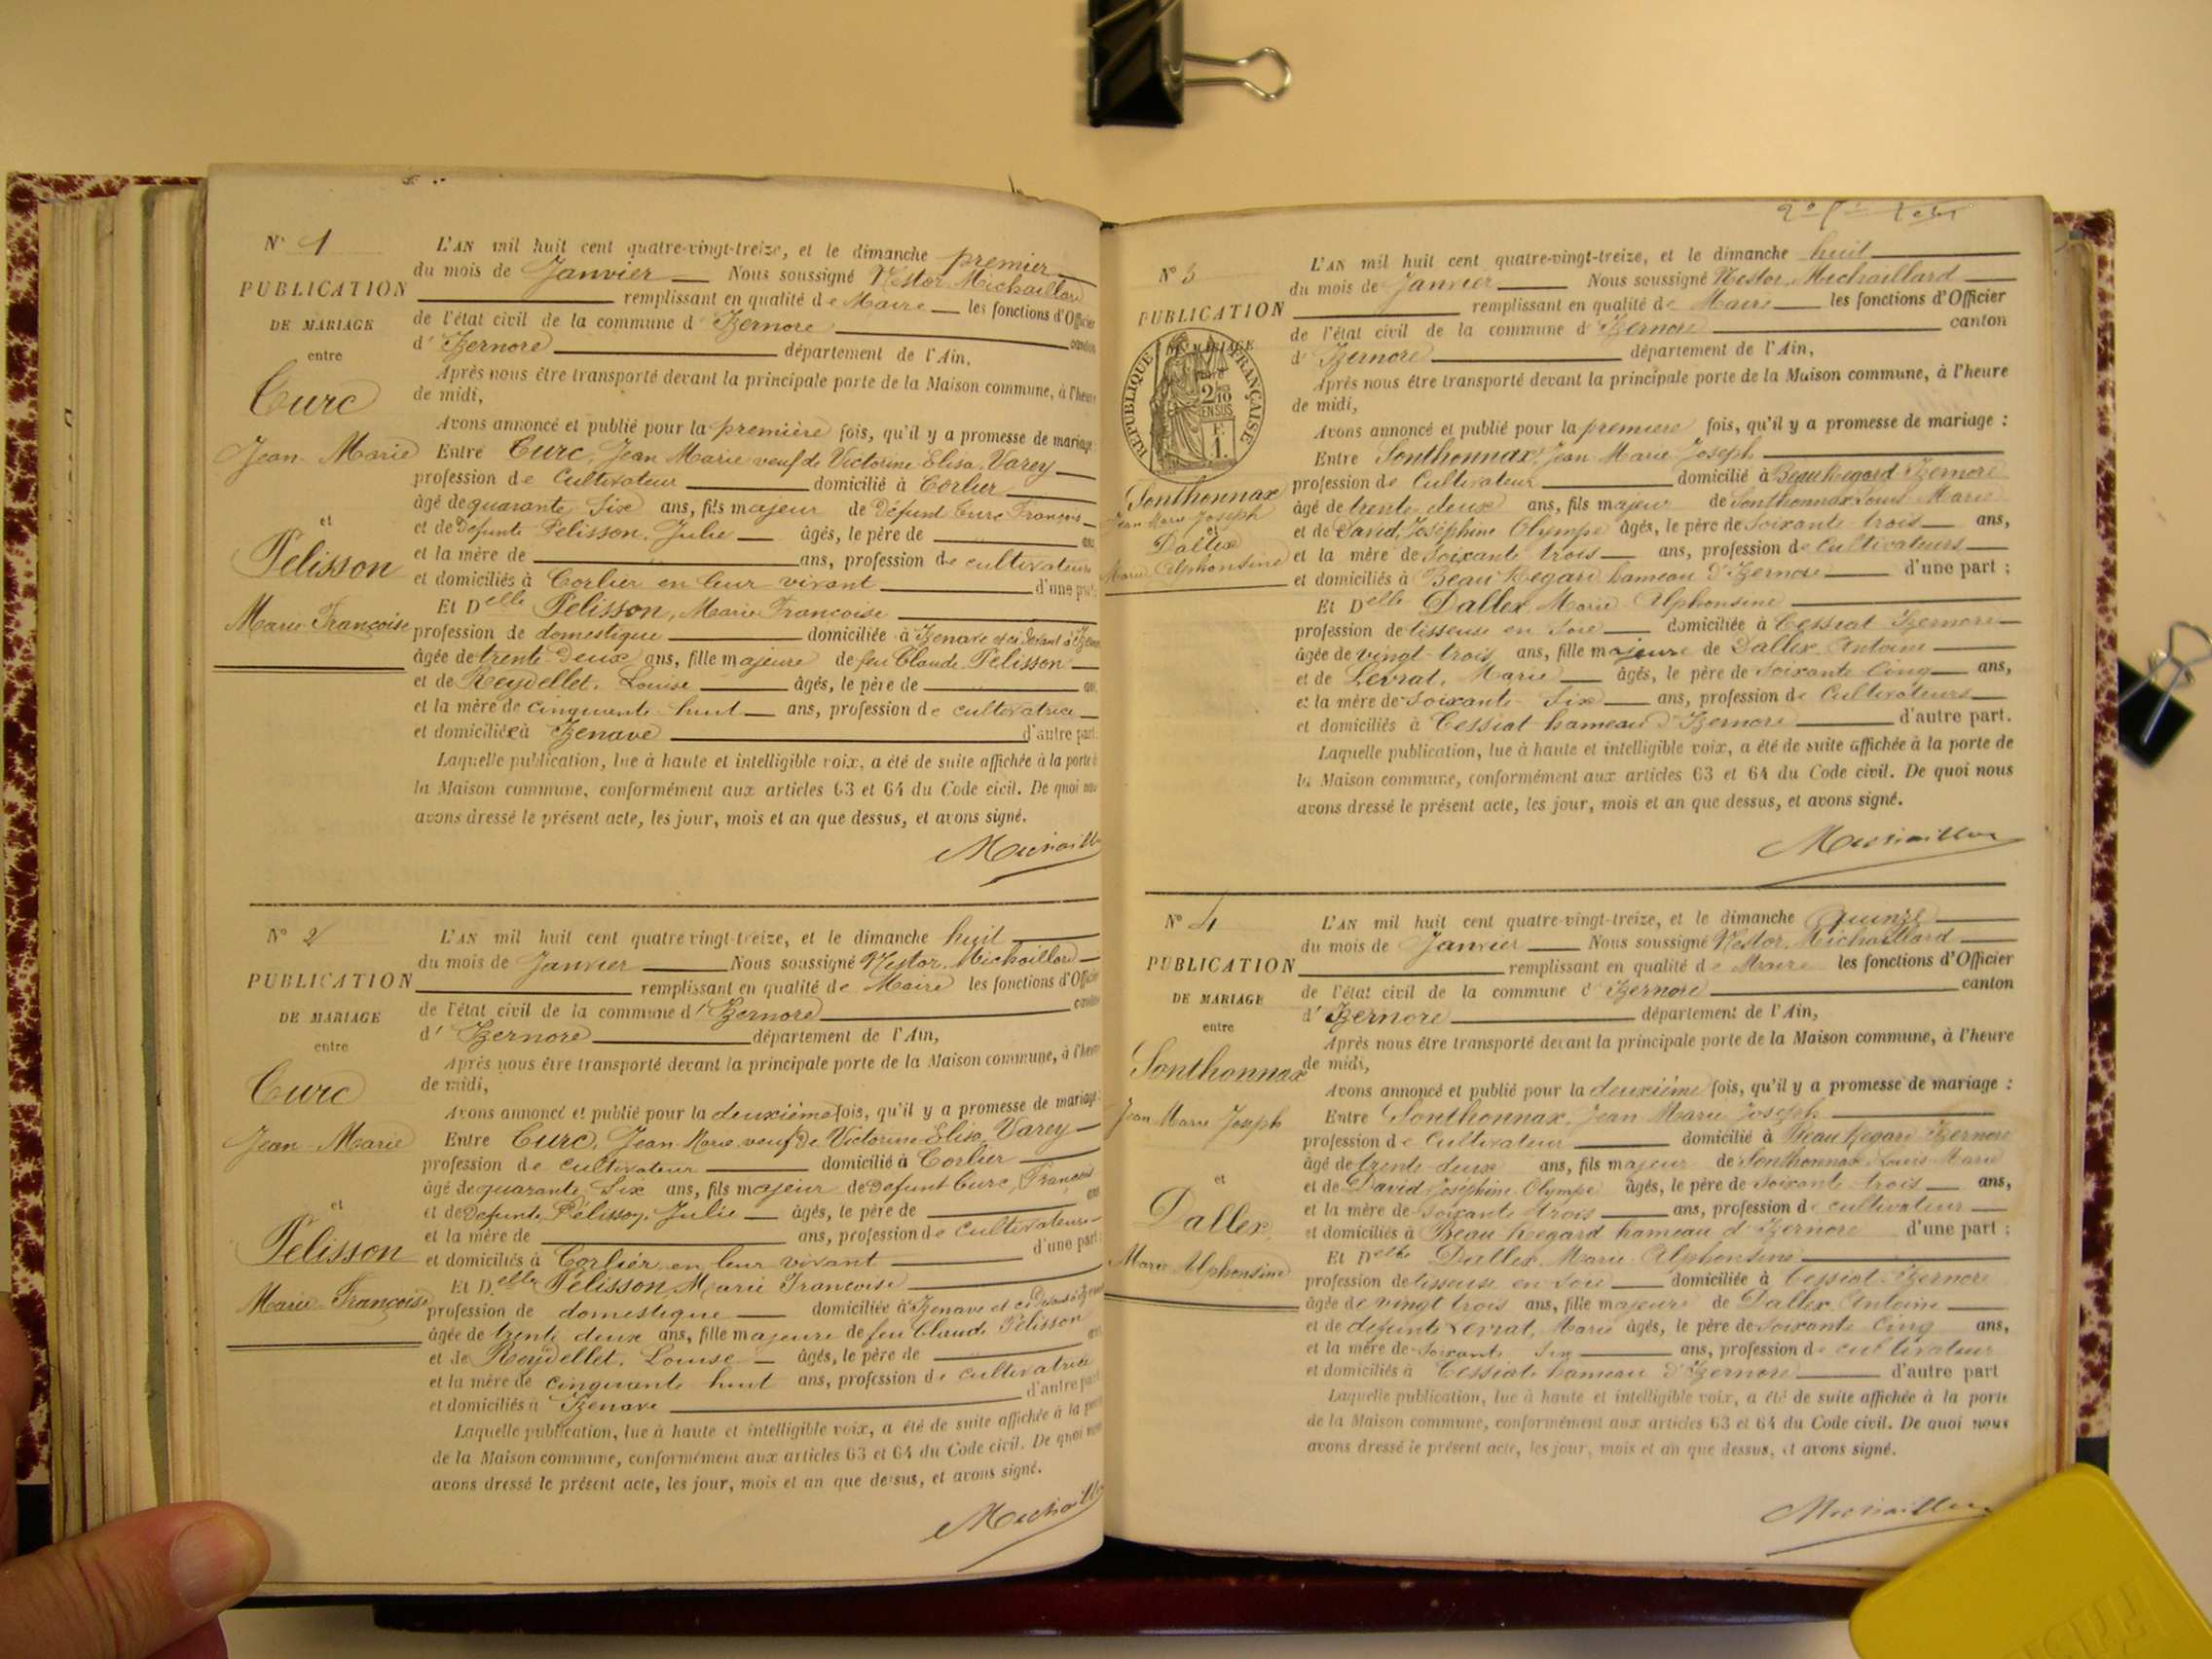 N° 1
PUBLICATION
DE MARIAGE
entre
Curc
Jean-Marie
et
Pélisson
Marie Françoise
L'AN mil huit cent quatre-vingt-treize, et le dimanche premier
du mois de Janvier Nous soussigné Nestor Michaillard
remplissant en qualité de Maire les fonctions d'Officier
de l'état civil de la commune d'Izernore canton
d'Izernore département de l'Ain,
Après nous être transporté devant la principale porte de la Maison commune, à l'heure
de midi,
Avons annoncé et publié pour la première fois, qu'il y a promesse de mariage:
Entre Curc, Jean Marie veuf de Victorine Elisa Varey
profession de Cultivateur domicilié à Corlier
âgé de quarante six ans, fils majeur de défunt Curc François
et de Défunte Pélisson, Julie âgés, le père de ans
et la mère de ans, profession de cultivateurs
et domiciliés à Corlier en leur vivant d'une part
Et Delle Pélisson, Marie Françoise
profession de domestique domiciliée à Izenave et ci devant à Izernore
âgée de trente-deux ans, fille majeure de feu Claude Pélisson
et de Reydellet, Louise âgés, le père de ans
et la mère de cinquante huit ans, profession de cultivatrice
et domiciliée à Izenave d'autre part
Laquelle publication, lue à haute et intelligible voix, a été de suite affichée à la porte
la Maison commune, conformément aux articles 63 et 64 du Code civil. De quoi nous
avons dressé le présent acte, les jour, mois et an que dessus, et avons signé.
N° 2
PUBLICATION
DE MARIAGE
entre
Curc
Jean-Marie
et
Pélisson
Marie-Françoise
L'AN mil huit cent quatre vingt-treize, et le dimanche huit
du mois de Janvier Nous soussigné Nestor Michaillard
remplissant en qualité de Maire les fonctions d'Officier
de l'état civil de la commune d'Izernore canton
d'Izernore département de l'Ain,
Après nous être transporté devant la principale porte de la Maison commune, à l'heure
de midi,
Avons annoncé et publié pour la deuxième fois, qu'il y a promesse de mariage:
Entre Curc, Jean-Marie veuf de Victorine Elisa Varey
profession de cultivateur domicilié à Corlier
âgé de quarante Six ans, fils majeur de défunt Curc, François
et de Défunte Pélisson, Julie âgés, le père de ans
et la mère de ans, profession de cultivateurs
et domiciliés à Corlier en leur vivant d'une part
Et Delle Pélisson, Marie Françoise
profession de domestique domiciliée à Izenave et ci devant à Izernore
âgée de trente deux ans, fille majeure de feu Claude Pélisson
et de Reydellet, Louise âgés, le père de ans
et la mère de cinquante huit ans, profession de cultivatrice
et domiciliés à Izenave d'autre part
Laquelle publication, lue à haute et intelligible voix, a été de suite affichée à la porte
de la Maison commune, conformément aux articles 63 et 64 du Code civil. De quoi nous
avons dressé le présent acte, les jour, mois et an que dessus, et avons signé.
N° 3
PUBLICATION
DE MARIAGE
RÉPUBLIQUE FRANÇAISE
2/10
EN SUS
F.
1.
Sonthonnax
Jean Marie Joseph
et
Dallex
Marie Alphonsine
L'AN mil huit cent quatre-vingt-treize, et le dimanche huit
du mois de Janvier Nous soussigné Nestor Michaillard
remplissant en qualité de Maire les fonctions d'Officier
de l'état civil de la commune d'Izernore canton
d'Izernore département de l'Ain,
Après nous être transporté devant la principale porte de la Maison commune, à l'heure
de midi,
Avons annoncé et publié pour la première fois, qu'il y a promesse de mariage :
Entre Sonthonnax, Jean Marie Joseph
profession de Cultivateur domicilié à Beau Regard Izernore
âgé de trente deux ans, fils majeur de Sonthonnax Louis Marie
et de David, Joséphine Olympe âgés, le père de Soixante trois ans,
et la mère de Soixante trois ans, profession de Cultivateurs
et domiciliés à Beau Regard hameau d'Izernore d'une part ;
Et Delle Dallex Marie Alphonsine
profession de tisseuse en soie domiciliée à Cessiat Izernore
âgée de vingt-trois ans, fille majeure de Dallex Antoine
et de Levrat, Marie âgés, le père de soixante Cinq ans,
et la mère de soixante Six ans, profession de Cultivateurs
et domiciliés à Cessiat hameau d'Izernore d'autre part.
Laquelle publication, lue à haute et intelligible voix, a été de suite affichée à la porte de
la Maison commune, conformément aux articles 63 et 64 du Code civil. De quoi nous
avons dressé le présent acte, les jour, mois et an que dessus, et avons signé.
N° 4
PUBLICATION
DE MARIAGE
entre
Sonthonnax
Jean Marie Joseph
et
Dallex
Marie Alphonsine
L'AN mil huit cent quatre-vingt-treize, et le dimanche quinze
du mois de Janvier Nous soussigné Nestor, Michaillard
remplissant en qualité de Maire les fonctions d'Officier
de l'état civil de la commune d'Izernore canton
d'Izernore département de l'Ain,
Après nous être transporté devant la principale porte de la Maison commune, à l'heure
de midi,
Avons annoncé et publié pour la deuxième fois, qu'il y a promesse de mariage :
Entre Sonthonnax, Jean Marie Joseph
profession de Cultivateur domicilié à Beau Regard Izernore
âgé de trente-deux ans, fils majeur de Sonthonnax Louis Marie
et de David Joséphine Olympe âgés, le père de soixante trois ans,
et la mère de soixante trois ans, profession de cultivateur
et domiciliés à Beau Regard hameau d'Izernore d'une part ;
Et Delle Dallex Marie Alphonsine
profession de tisseuse en soie domiciliée à Cessiat Izernore
âgée de vingt trois ans, fille majeure de Dallex, Antoine
et de défunte Levrat, Marie âgés, le père de soixante Cinq ans,
et la mère de soixante Six ans, profession de cultivateur
et domiciliés à Cessiat hameau d'Izernore d'autre part
Laquelle publication, lue à haute et intelligible voix, a été de suite affichée à la porte
de la Maison commune, conformément aux articles 63 et 64 du Code civil. De quoi nous
avons dressé le présent acte, les jour, mois et an que dessus, et avons signé.